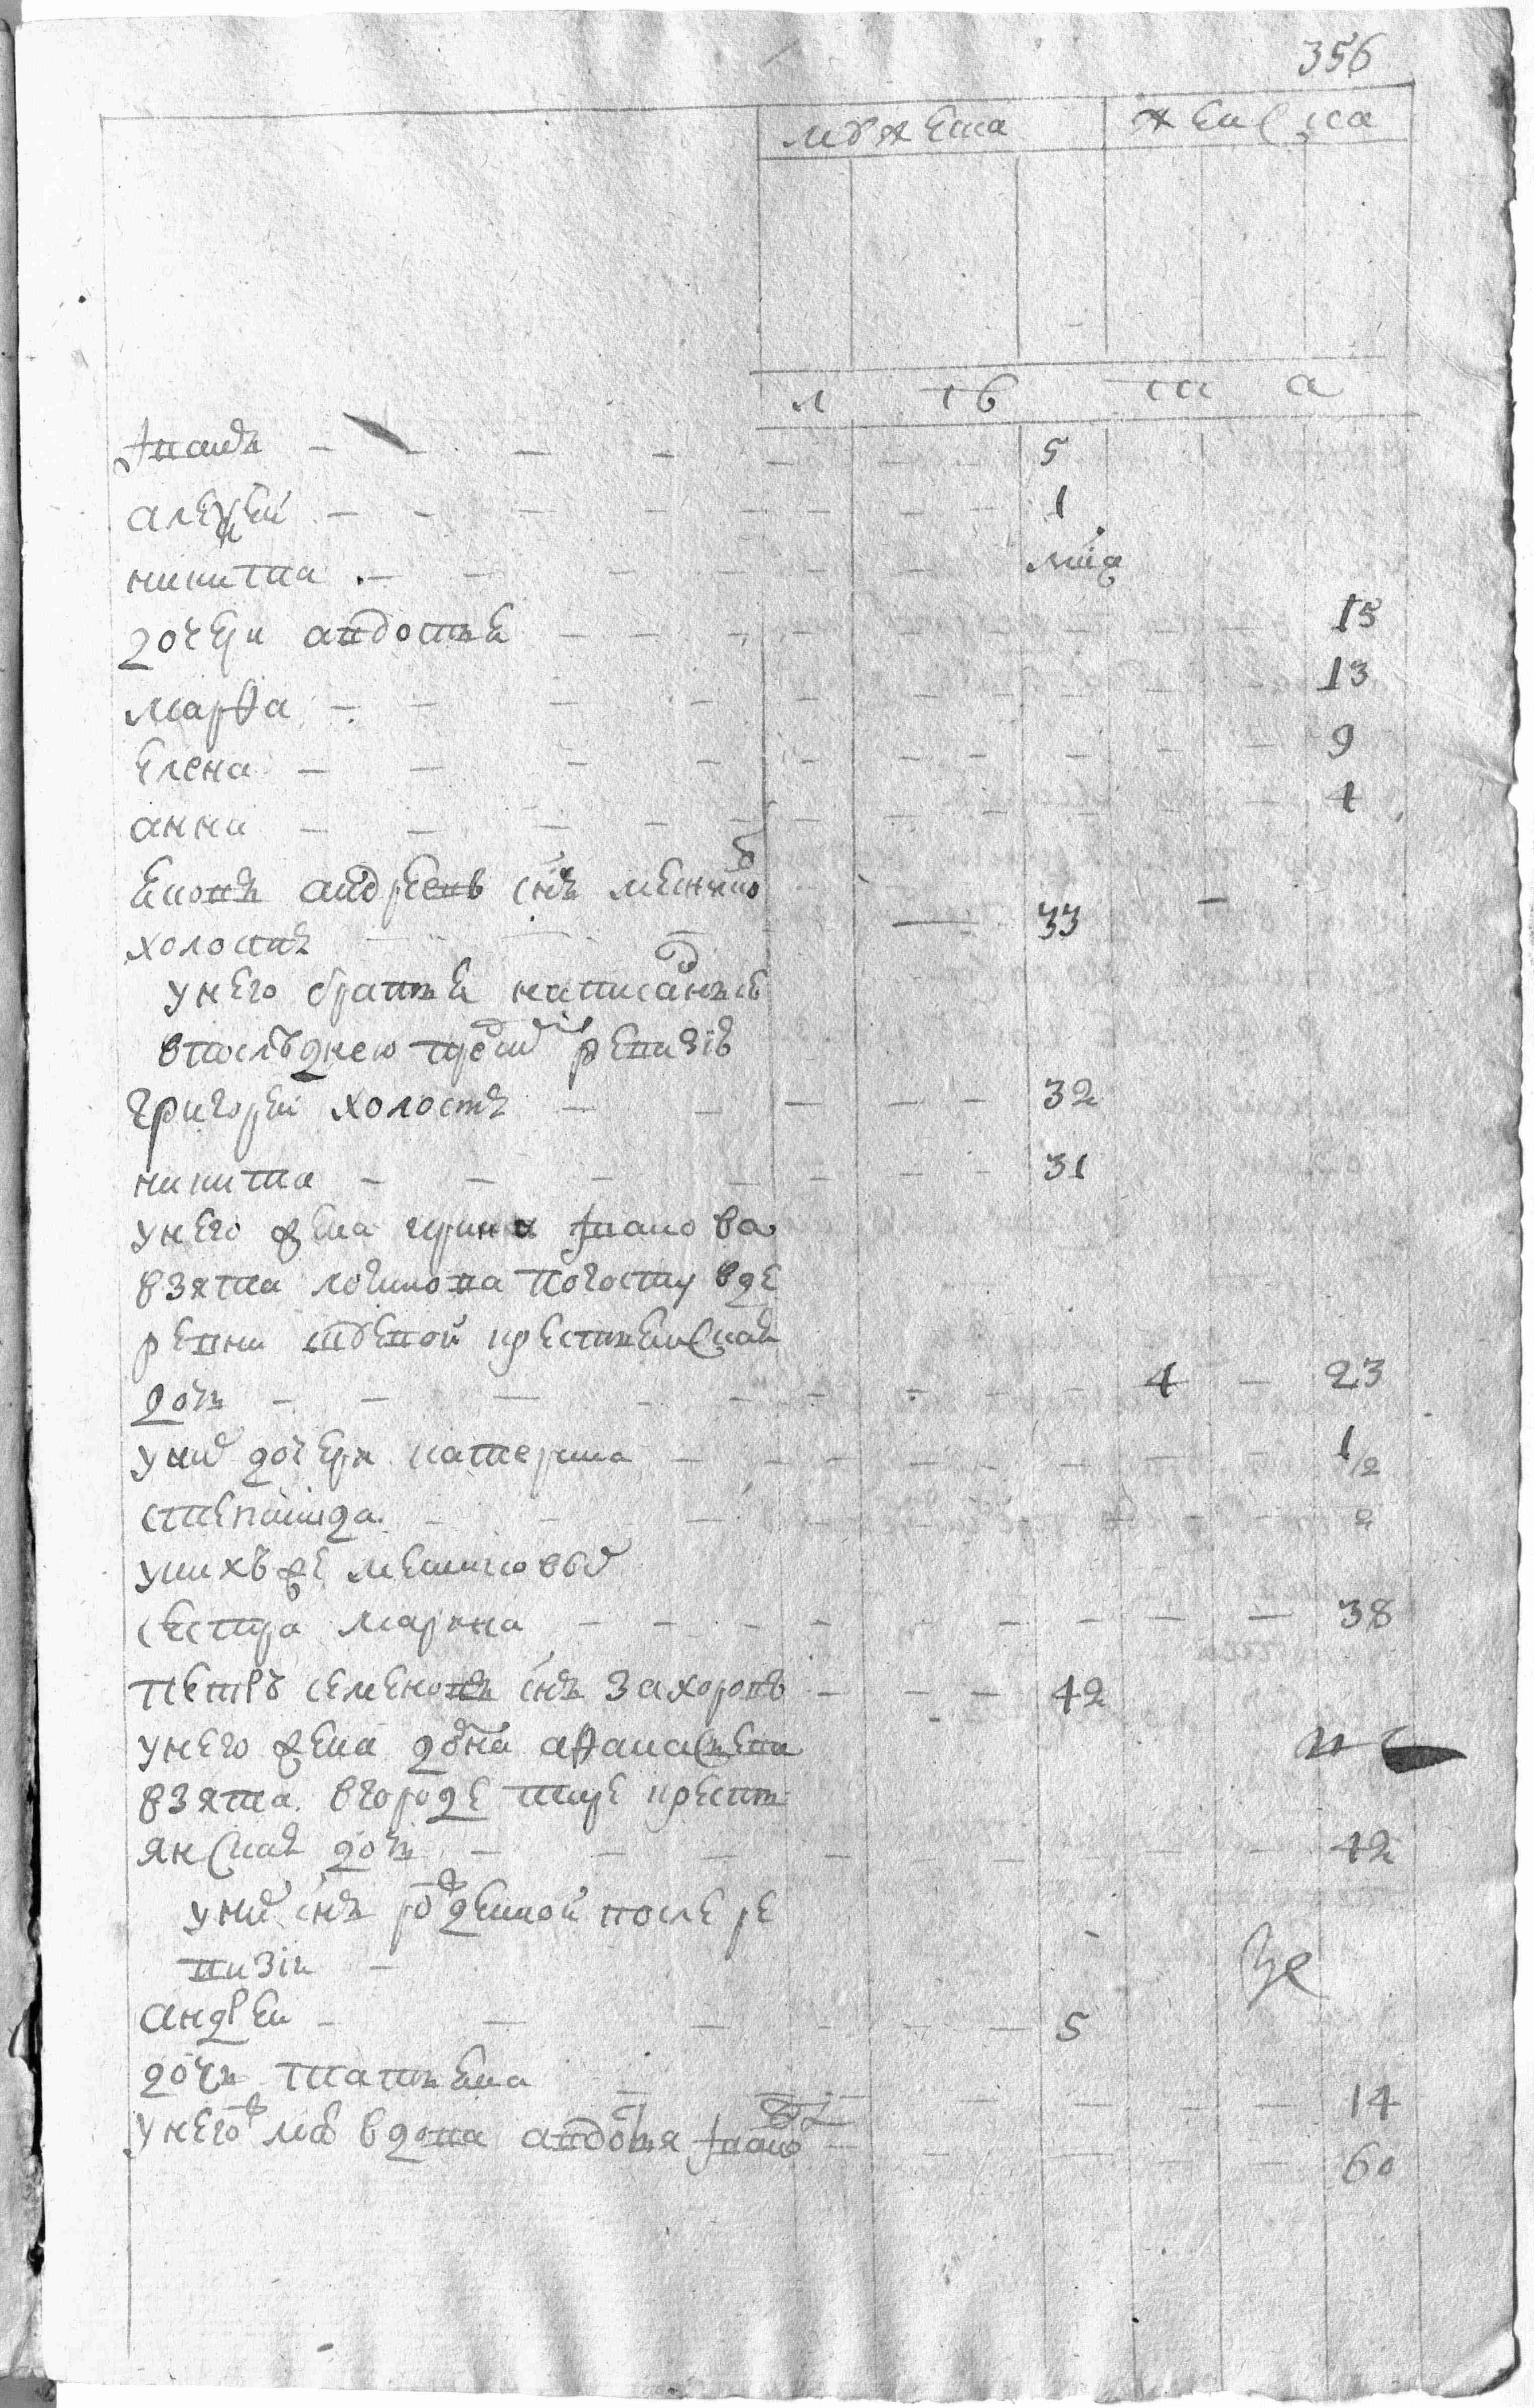 356
мужеска женска
л тъ та
Иванъ 5
алеѯей 1
никита мца
дочери авдотья 15
марѳа 13
елена 9
анна 4
холостъ 33
у него братья написанные
в последнею пред сей ревизiе
григорей холостъ 32
никита 31
у него жена ирина Иванова
взята погосту в де
ревни крестьянская
дочь 4 23
у них дочери катерина 1/2
степанида 2
у них же
сестра марина 38
петръ семеновъ снъ захоровъ 42
у него жена домна аѳанасьева
взята в городе таре крестьян
янская дочь 42
у них снъ рожденной после ре
визiи
андрей 5
дочь татьяна 14
у него ж мать вдова авдотья Иванова 60